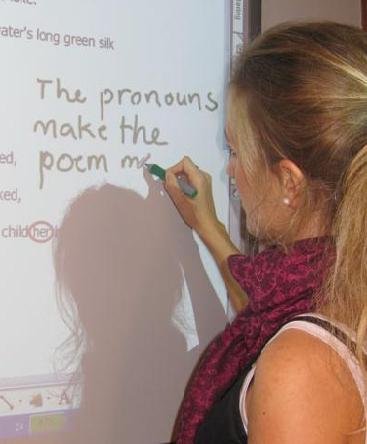 water's long green silk
The pronouns
make the
poem m
ed,
ked,
child her
A